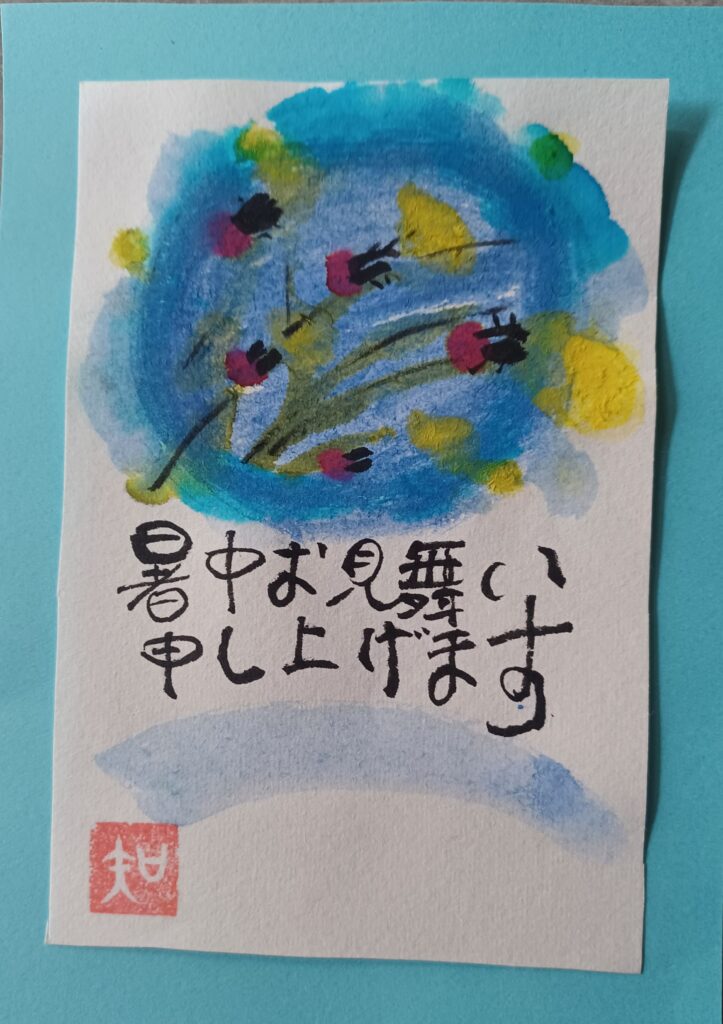 暑中お見舞い
申し上げます
知